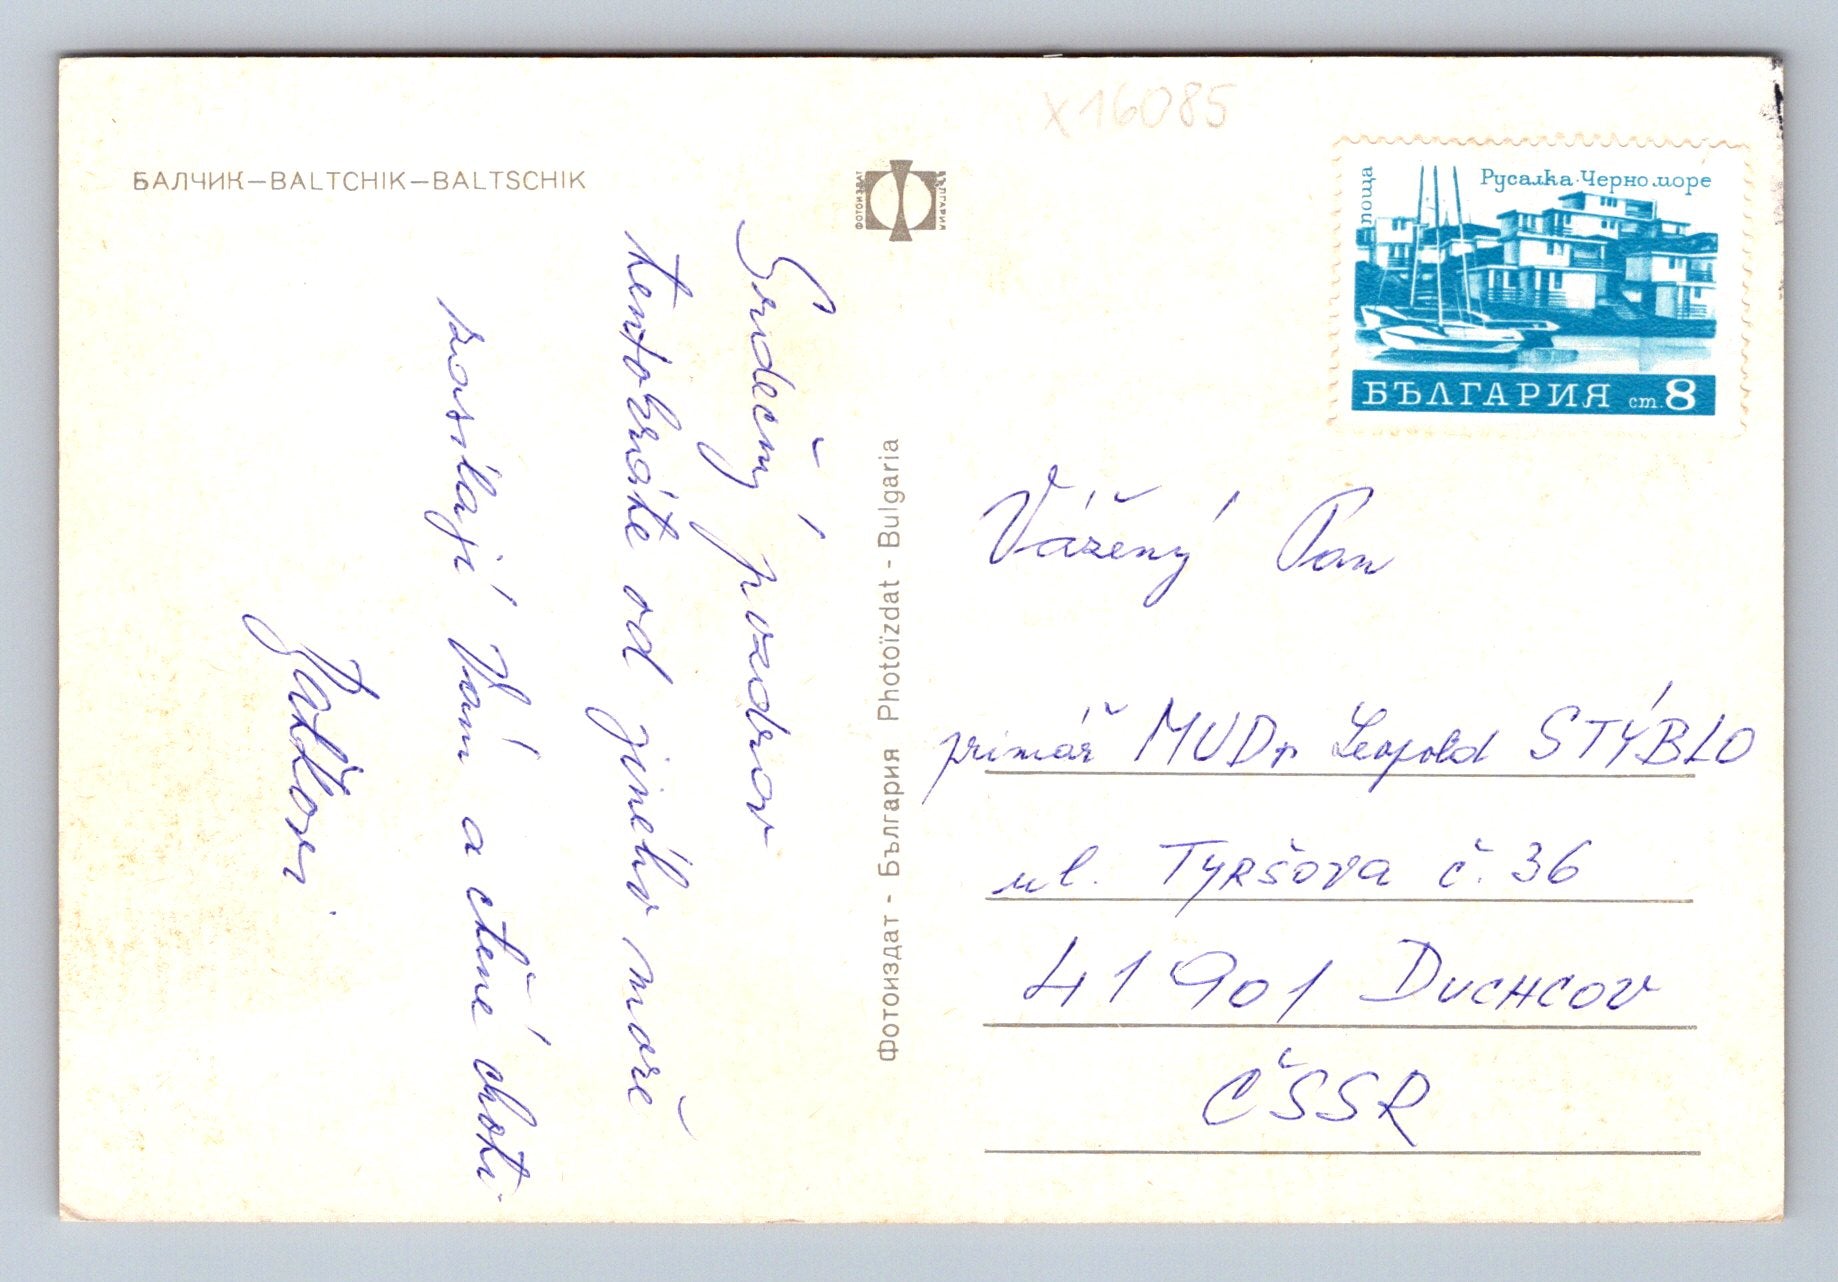 x16085
БАЛЧИК—BALTCHIK—BALTSCHIK
ФОТОИЗДАТ
БЪЛГАРИЯ
поща
Русалка·Черно море
БЪЛГАРИЯ ст. 8
Srdečný pozdrav
tentokráte od jiného moře
zasílají Vám a ctěné choti
Фотоиздат - България Photoïzdat - Bulgaria
Vážený Pan
primář MUDr Leopold STÝBLO
ul. Tyršova č. 36
41901 Duchcov
ČSSR